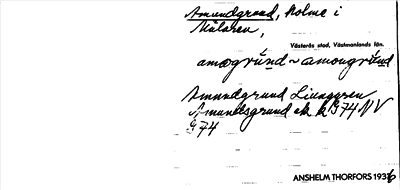 Amundgrund, holme i
Mälaren,
Västerås stad, Västmanlands län.
amogrúnd ~ amongrúnd
Amundgrund Ljunggren
Amundsgrund ek. k. G74 NV
G74
ANSHELM THORFORS 1936